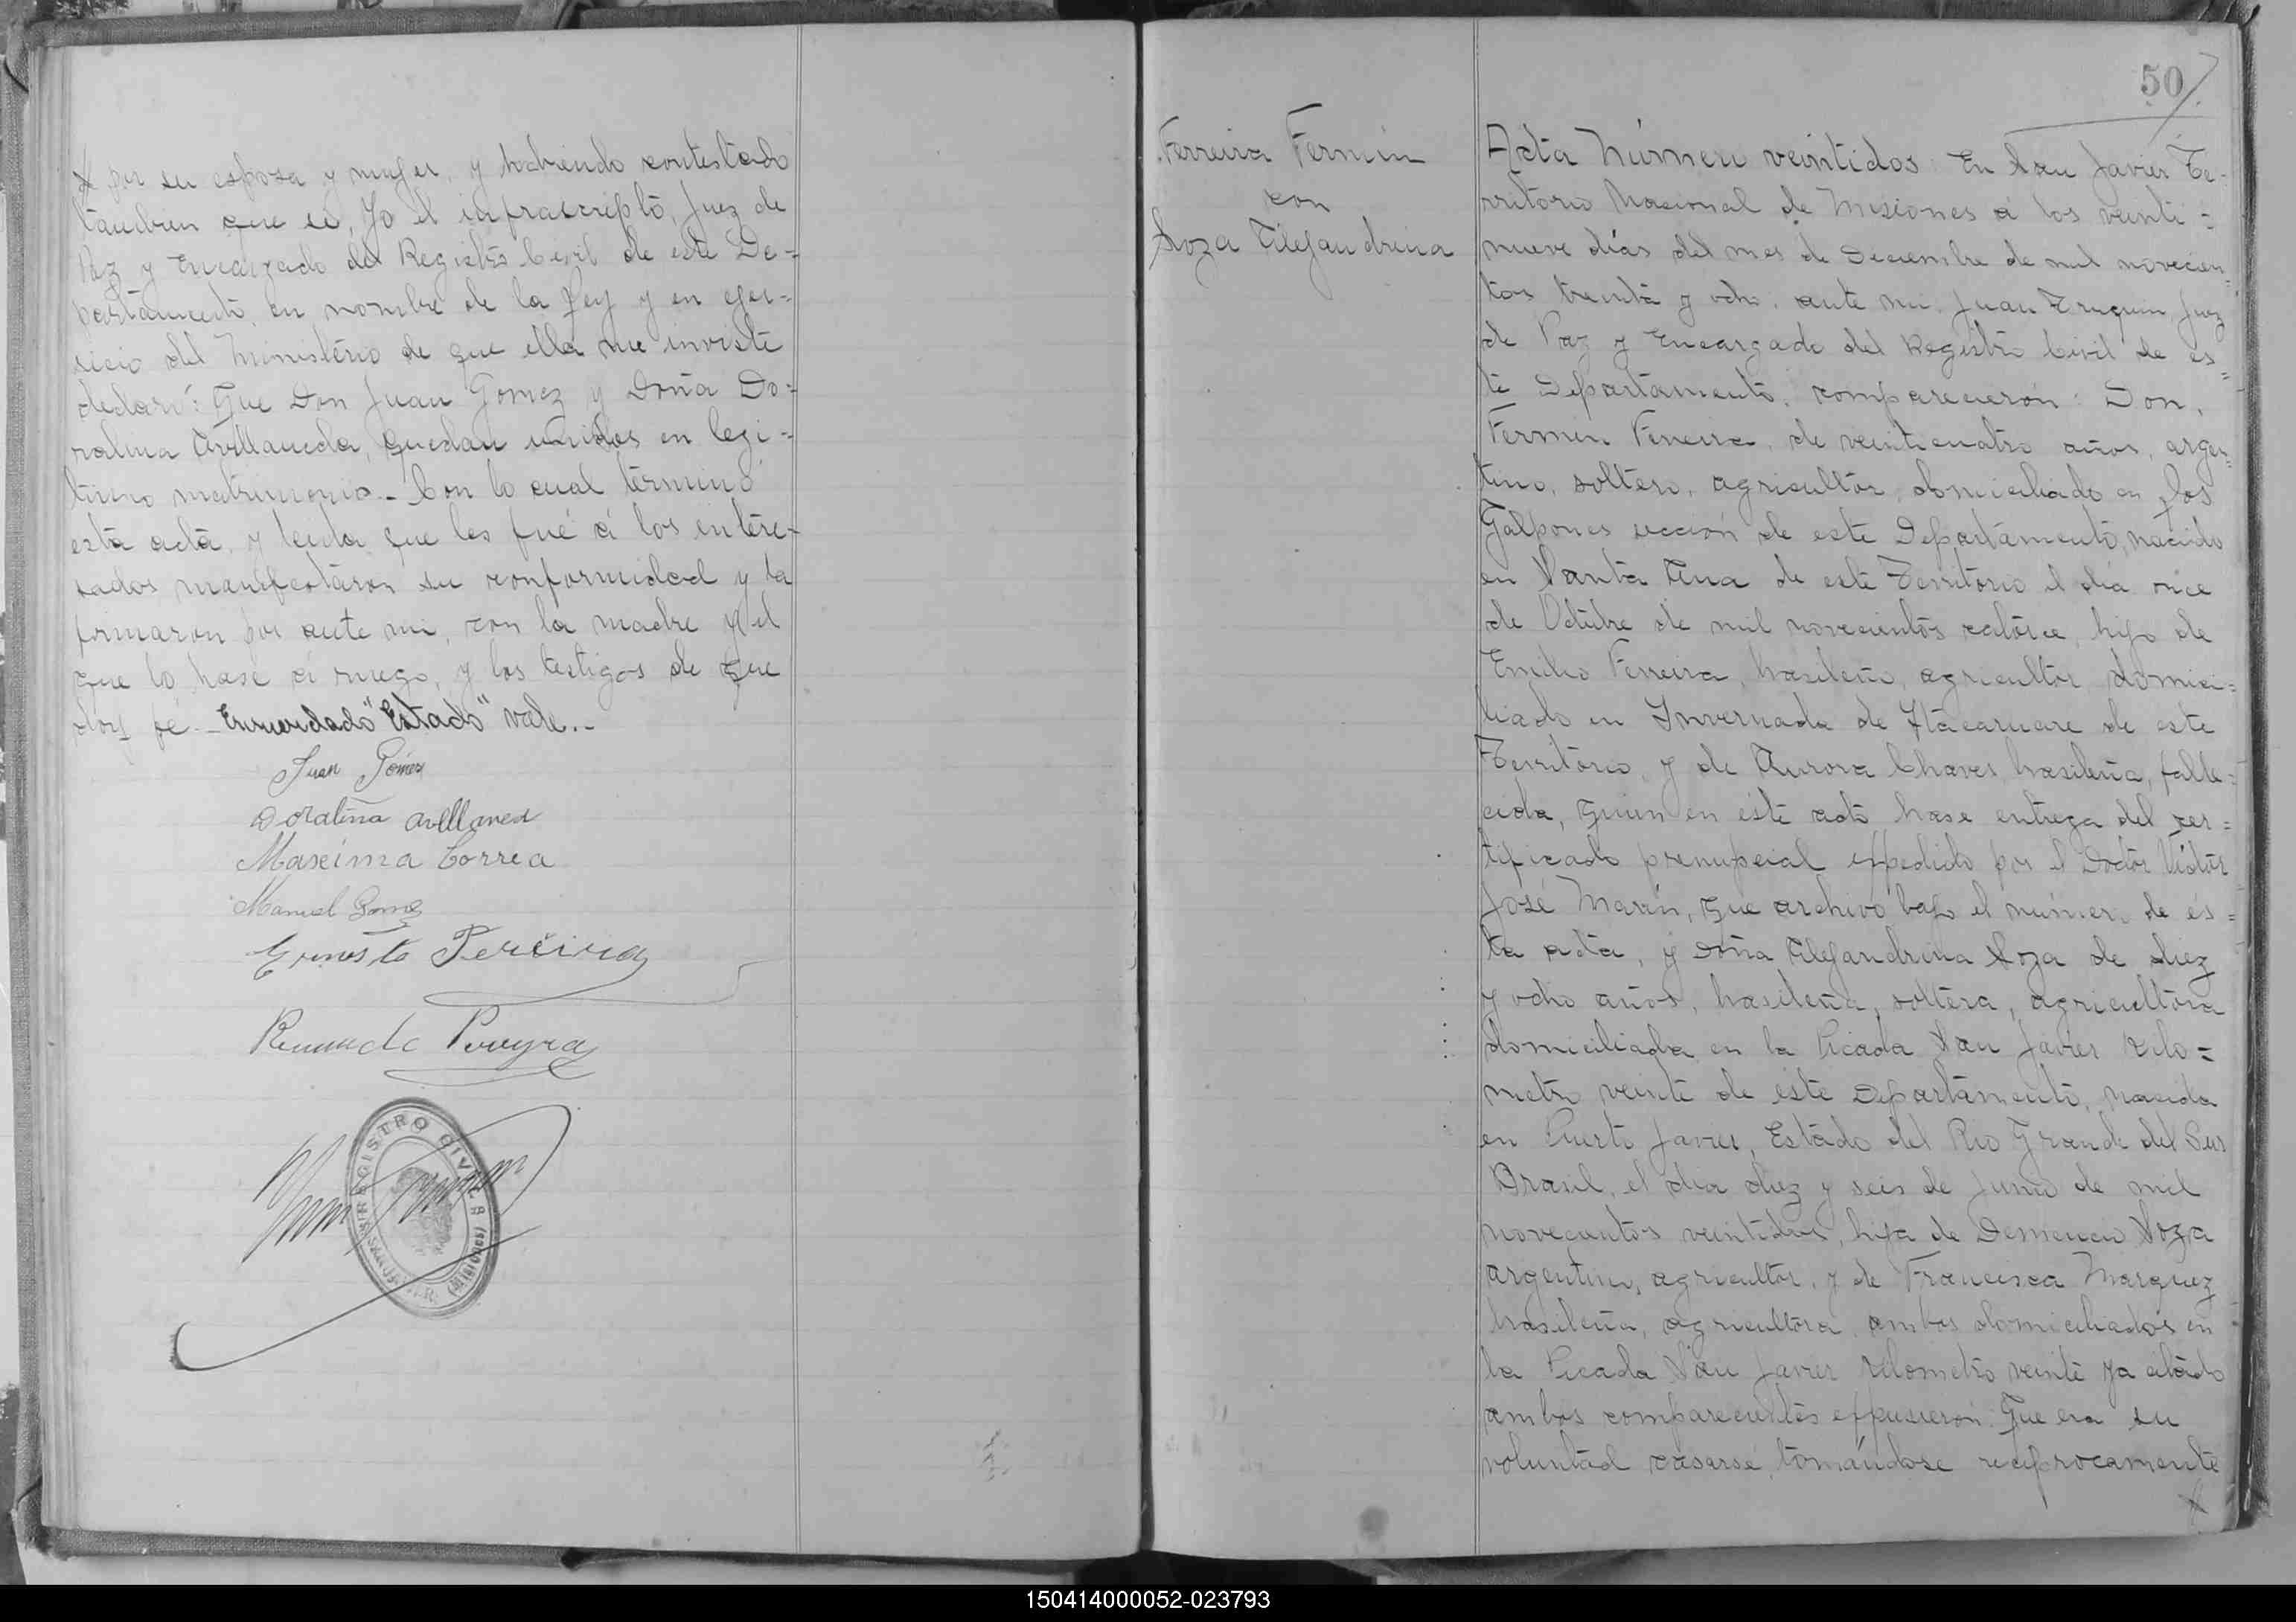 por su esposa y mujer, y habiendo contestado
tambien que si, Yo el infrascripto, Juez de
Paz y Encargado del Registro Civil de este De=
partamento, en nombre de la Ley y en ejer=
sicio del Ministerio de que ella me inviste
declaro: Que Don Juan Gomez y Doña Do=
ralina Avellaneda, quedan unidos en legi=
timo matrimonio.- Con lo cual terminó
esta acta, y leida que les fué á los intere=
sados manifestaron su conformidad y la
firmaron por ante mi, con la madre y el
que lo hase á ruego, y los testigos de que
doy fé.- Enmendado "Estado" vale.-
Juan Gómez
Doralina avellaned
Maxima Correa
Manuel Gomez
Ernesto Pereira
Pereyra
REGISTRO CIVIL
SAN JAVIER (Misiones)
50
Ferreira Fermin
con
Soza Alejandrina
Acta Número veintidos: En San Javier Te-
rritorio Nacional de Misiones á los veinti=
nueve días del mes de Deciembre de mil novecien=
tos treinta y ocho, ante mi, Juan Truquin, Juez
de Paz y Encargado del Registro Civil de es=
te Departamento, comparecieron: Don,
Fermin Ferreira, de veinticuatro años, argen=
tino, soltero, agricultor, domiciliado en Los
Galpones sección de este Departamento, nacido
en Santa Ana de este Territorio el día once
de Octubre de mil novecientos catorce, hijo de
Emilio Ferreira, brasileño, agricultor, domici=
liado en Invernada de Itacaruare de este
Territorio, y de Aurora Chaves, brasileña, falle=
cida, quien en este acto hase entrega del cer=
tificado prenupcial expedido por el Doctor Victor
José Marin, que archivo bajo el número de es=
ta acta, y Doña Alejandrina Soza de diez
y ocho años, brasileña, soltera, agricultora
domiciliada en la Picada San Javier kilo=
metro veinte de este Departamento, nacida
en Puerto Javier, Estado del Rio Grande del Sur
Brasil, el día diez y seis de Junio de mil
novecientos veintidos, hija de Demencio Soza
argentino, agricultor, y de Francisca Marquez
brasileña, agricultora, ambos domiciliados en
la Picada San Javier kilometro veinte ya citado
ambos comparecientes expusieron: Que era su
voluntad casarse, tomándose reciprocamente
150414000052-023793